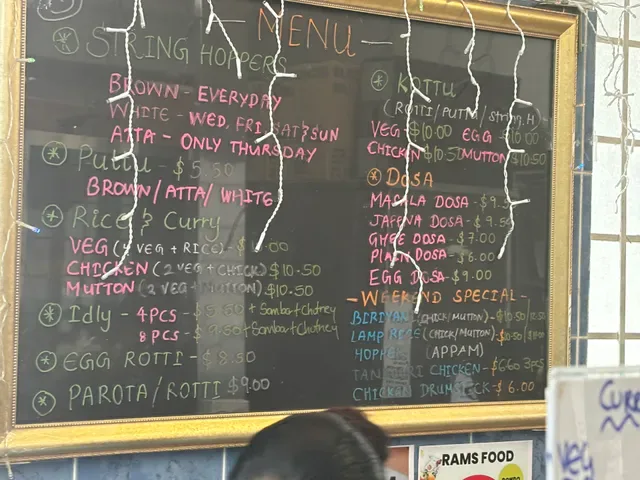 MENU
STRING HOPPERS
BROWN - EVERYDAY
WHITE - WED, FRI, SAT & SUN
ATTA - ONLY THURSDAY
Puttu - $5.50
BROWN/ATTA/WHITE
Rice & Curry
VEG (4 VEG + RICE) - $
CHICKEN (2 VEG + CHICK) $10.50
MUTTON (2 VEG + MUTTON) $10.50
Idly - 4PCS - $5.50 + Sambar + Chutney
8PCS - $9.50 + Sambar + Chutney
EGG ROTTI - $8.50
PAROTA/ROTTI $9.00
KOTTU
(ROTTI/PUTTU/String.H)
VEG $10.00 EGG $10.00
CHICKEN $10.50 MUTTON $10.50
DOSA
MASALA DOSA - $9.5
JAFFNA DOSA - $9.50
GHEE DOSA - $7.00
PLAIN DOSA - $6.00
EGG DOSA - $9.00
- WEEKEND SPECIAL -
BIRIYANI (CHICK/MUTTON) -
LAMP RICE (CHICK/MUTTON) -
HOPPERS (APPAM)
TANDURI CHICKEN - 3PCS
CHICKEN DRUMSTICK - $6.00
RAMS FOOD
VEG